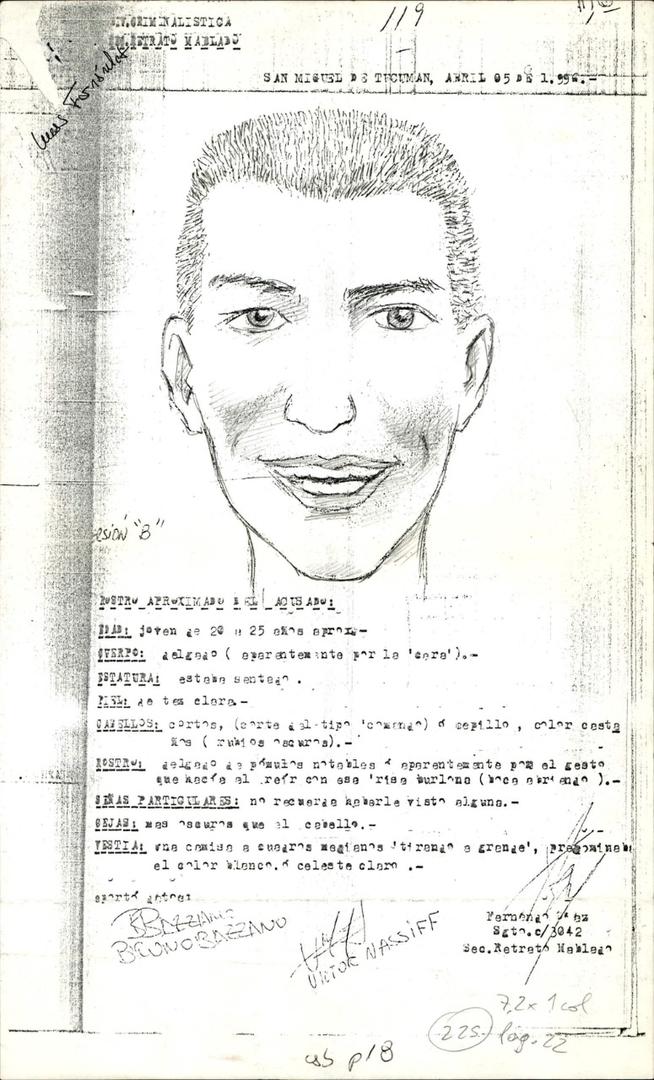 DIV. CRIMINALISTICA
RETRATO HABLADO
119
SAN MIGUEL DE TUCUMAN, ABRIL 05 DE 1.996.-
"B"
ROSTRO APROXIMADO DEL ACUSADO:
EDAD: joven de 20 a 25 años aprox.-
CUERPO: delgado ( aparentemente por la 'cara').-
ESTATURA: estaba sentado .
PIEL: de tez clara.-
CABELLOS: cortos, (corte del-tipo 'comando) ó cepillo , color casta
ños ( rubios oscuros).-
ROSTRO: delgado de pómulos notables ó aparentemente por el gesto
que hacía al reír con esa 'risa burlona (boca abriendo ).-
SEÑAS PARTICULARES: no recuerda haberle visto alguna.-
CEJAS: mas oscuros que el cabello.-
VESTIA: una camisa a cuadros medianos 'tirando a grande', predominab
el color blanco.ó celeste claro .-
aportó datos:
BBAZZANO
BRUNO BAZZANO
VICTOR NASSIFF
Fernando
Sgto.c/3042
Sec.Retrato Hablado
7,2 x 1 col
225. pag. 22
p/8